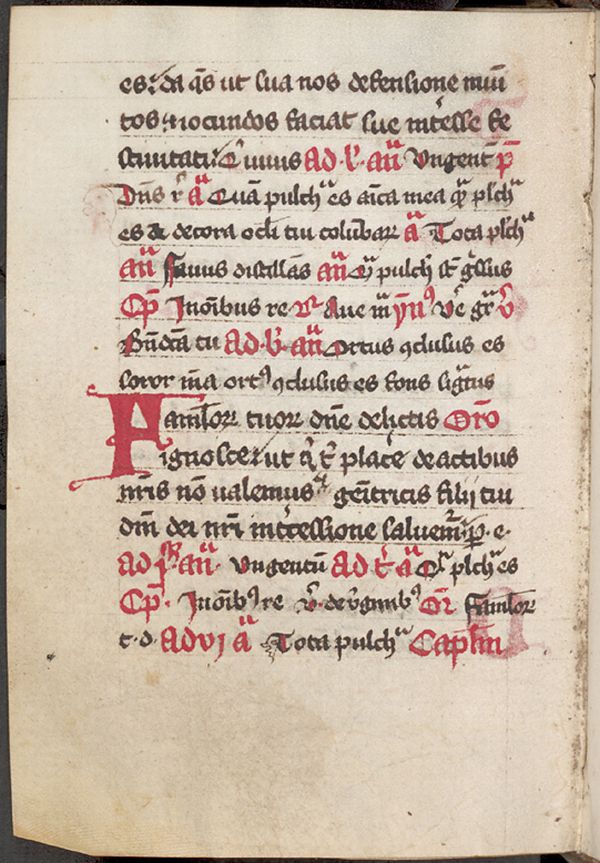 es ⁊ da q̄s ut sua nos defensione muni
tos ⁊ iocundos faciat sue īteresse fe
stiuitati Qui uiuus ad l' an̄ Ungent p̄
Dn̄s r̄ a Quā pulchᵃ es aīca mea qᵃ plchᵃ
es & decora ocli tui columbar a Tota plchᵃ
an̄ Fauus distillās an̄ Qᵃ pulch sūt gssus
Cp̄ In oībus re Aue m̄ ymᵍ Ue gr
Bn̄dcā tu ad b' an̄ Ortus ꝯclusus es
soror m̄a ortᵍ ꝯclusus es fons sigtus
Famlor tuor dn̄e delictis Oro
ignosce ut q̄ t' place de actibus
nr̄is nō ualemus genitricis filij tui
dn̄i dei nr̄i int'cessione saluem p. e.
ad an̄ Ungentū ad t' a Qᵃ plchᵃ es
Cp̄. In oībᵍ re de uirginibᵍ Or Famlor
t. d. ad vi a Tota pulchᵃ Caplm̄